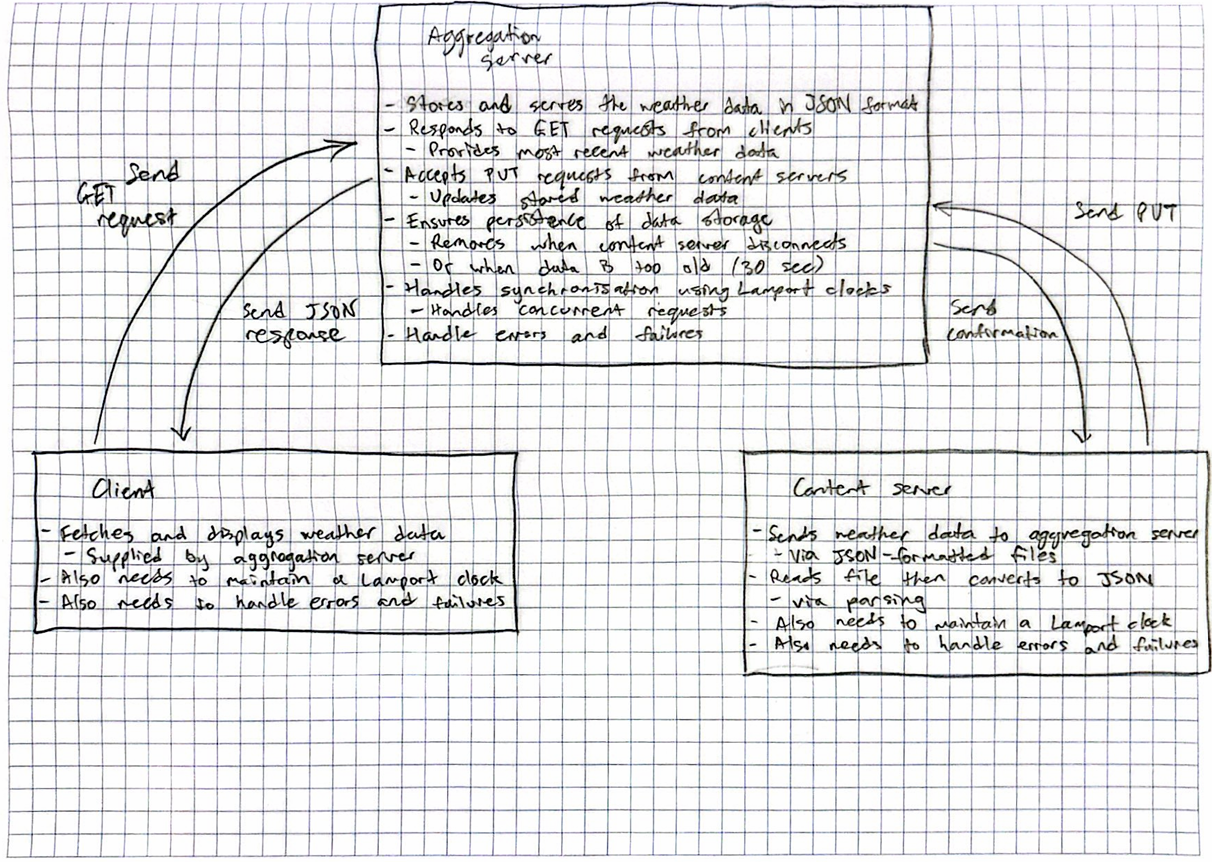 Aggregation
server
- Stores and serves the weather data in JSON format
- Responds to GET requests from clients
- Provides most recent weather data
- Accepts PUT requests from content servers
- Updates stored weather data
- Ensures persistence of data storage
- Removes when content server disconnects
- Or when data is too old (30 sec)
- Handles synchronisation using Lamport clocks
- Handles concurrent requests
- Handle errors and failures
Send
GET
request
Send JSON
response
Send PUT
Send
confirmation
Client
- Fetches and displays weather data
- Supplied by aggregation server
- Also needs to maintain a Lamport clock
- Also needs to handle errors and failures
Content server
- Sends weather data to aggregation server
- Via JSON-formatted files
- Reads file then converts to JSON
- via parsing
- Also needs to maintain a Lamport clock
- Also needs to handle errors and failures